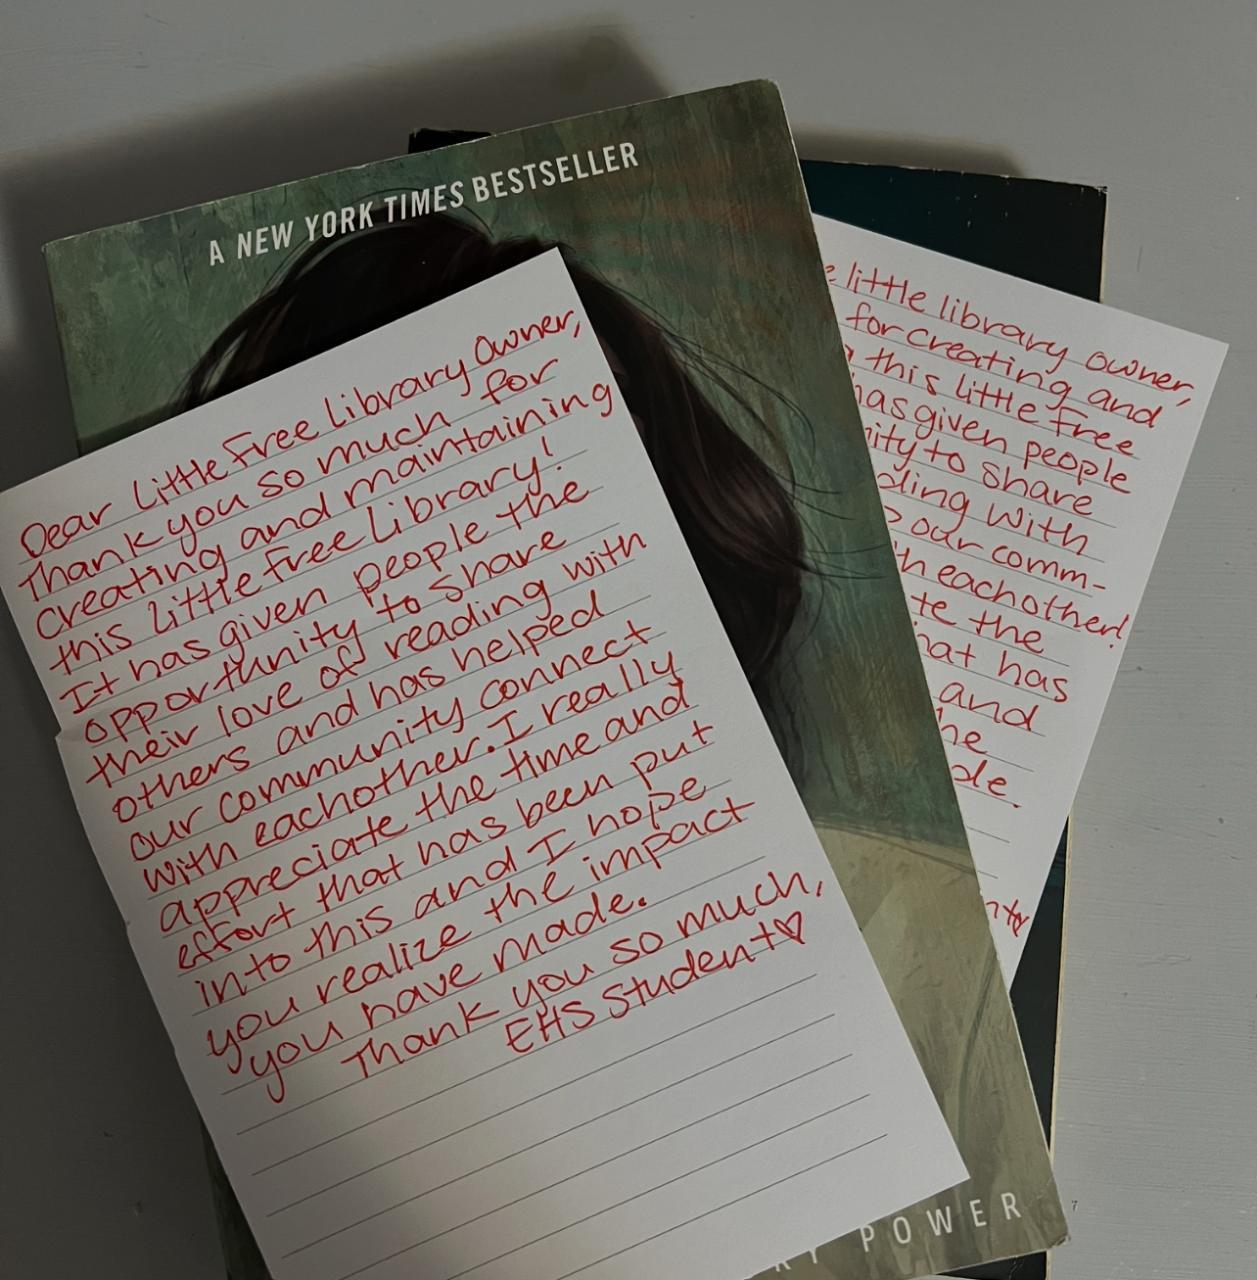 A NEW YORK TIMES BESTSELLER
Dear Little Free Library Owner,
Thank you so much for
creating and maintaining
this Little Free Library!
It has given people the
opportunity to share
their love of reading with
others and has helped
our community connect
with eachother. I really
appreciate the time and
effort that has been put
into this and I hope
you realize the impact
you have made.
Thank you so much,
EHS Student♡
little library owner,
for creating and
this little free
has given people
to share
with
our comm-
eachother!
the
has
and
POWER